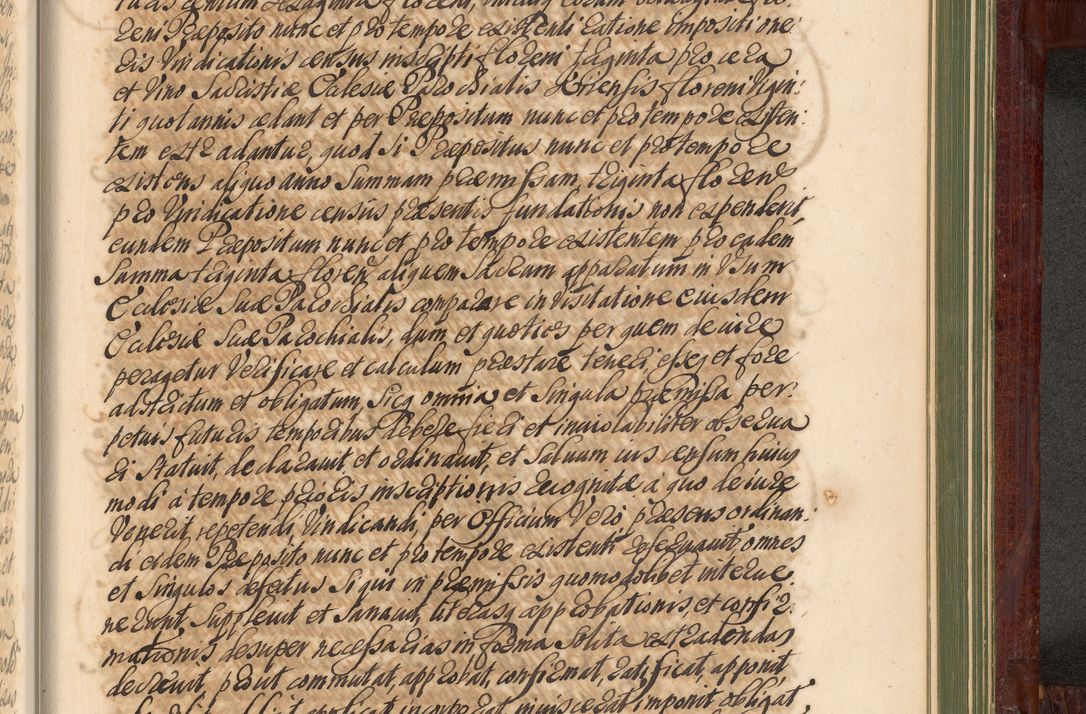 reni Præposito nunc et pro tempore existenti ratione impositi one
ris Vindicationis census inscripti floreni triginta pro cera
et Vino Sacristiæ Ecclesiæ Parochialis floreni Vigin:
ti quotannis cedant et per Præpositum nunc et pro tempore existen:
tem extradantur, quod Si Præpositus nunc et pro tempore
existens aliquo anno Summam præmissam triginta floren
pro Vindicatione census præsentis fundationis non expenderit,
eundem Præpositum nunc et pro tempore existentem pro eadem
Summa triginta floren aliquem Sacrum apparatum in Usum
Ecclesiæ Suæ Parochialis comparare in Visitatione eiusdem
Ecclesiæ Suæ Parochialis, dum et quoties per quem de iure
peragetur Verificare et calculum præstare teneri, esse, et fore
adstrictum et obligatum, Sicq omnia et Singula præmissa per:
petuis futuris temporibus debere fieri et inviolabiliter observa
ri Statuit, declaravit et ordinavit, et Salvum ius censum huius
modi a tempore prioris inscriptionis recognitæ a quo de iure
Venerit, repetendi, Vindicandi, per Officium Vero præsens ordinan:
di eidem Præposito nunc et pro tempore existenti reservavit, omnes
et Singulos defectus Si qui in præmissis quomodolibet interve,
nerunt, Supplevit et Sanavit, literasq approbationis et confir:
mationis desuper necessarias in forma Solita extradendas
decrevit, prout commutat, approbat, confirmat, ratificat, apponit
applicat incorporat inviscerat imponit obligat,